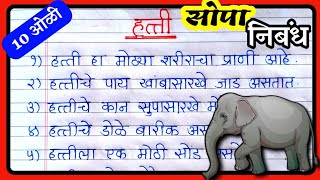 10 ओळी
हत्ती
सोपा
निबंध
१) हत्ती हा मोठ्या शरीराचा प्राणी आहे.
२) हत्तीचे पाय खांबासारखे जाड असतात.
३) हत्तीचे कान सुपासारखे
४) हत्तीचे डोळे बारीक
५) हत्तीला एक मोठी सोंड